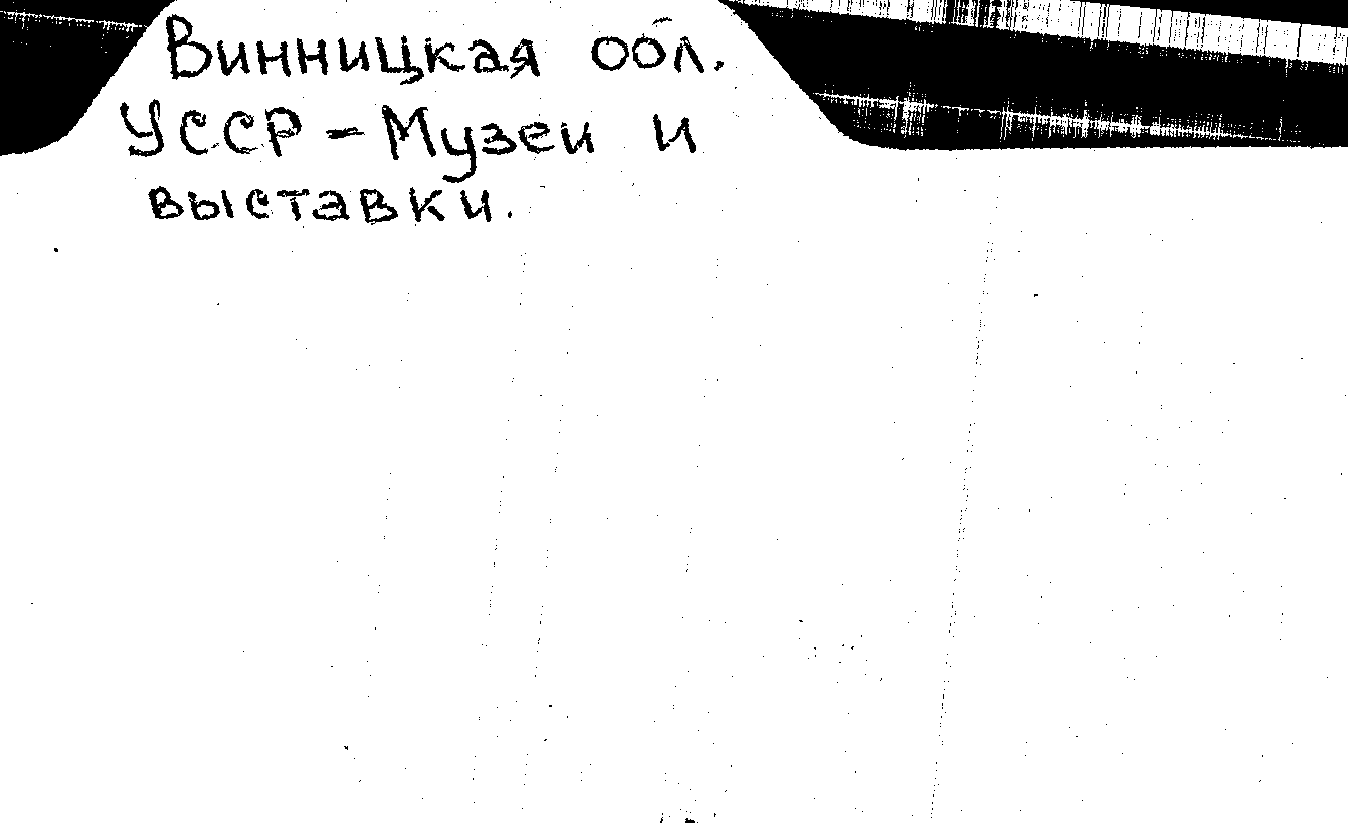 Винницкая обл.
УССР - Музеи и
выставки.